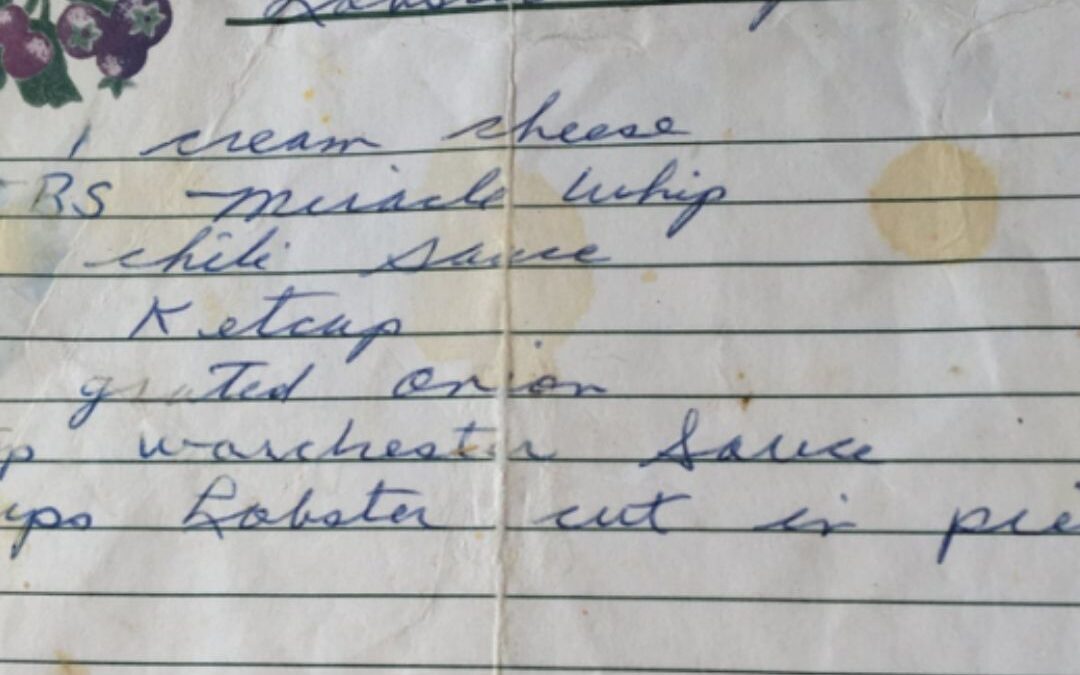 1 cream cheese
BS Miracle Whip
chili sauce
Ketcup
grated onion
p worchester Sauce
ups Lobster cut in pie